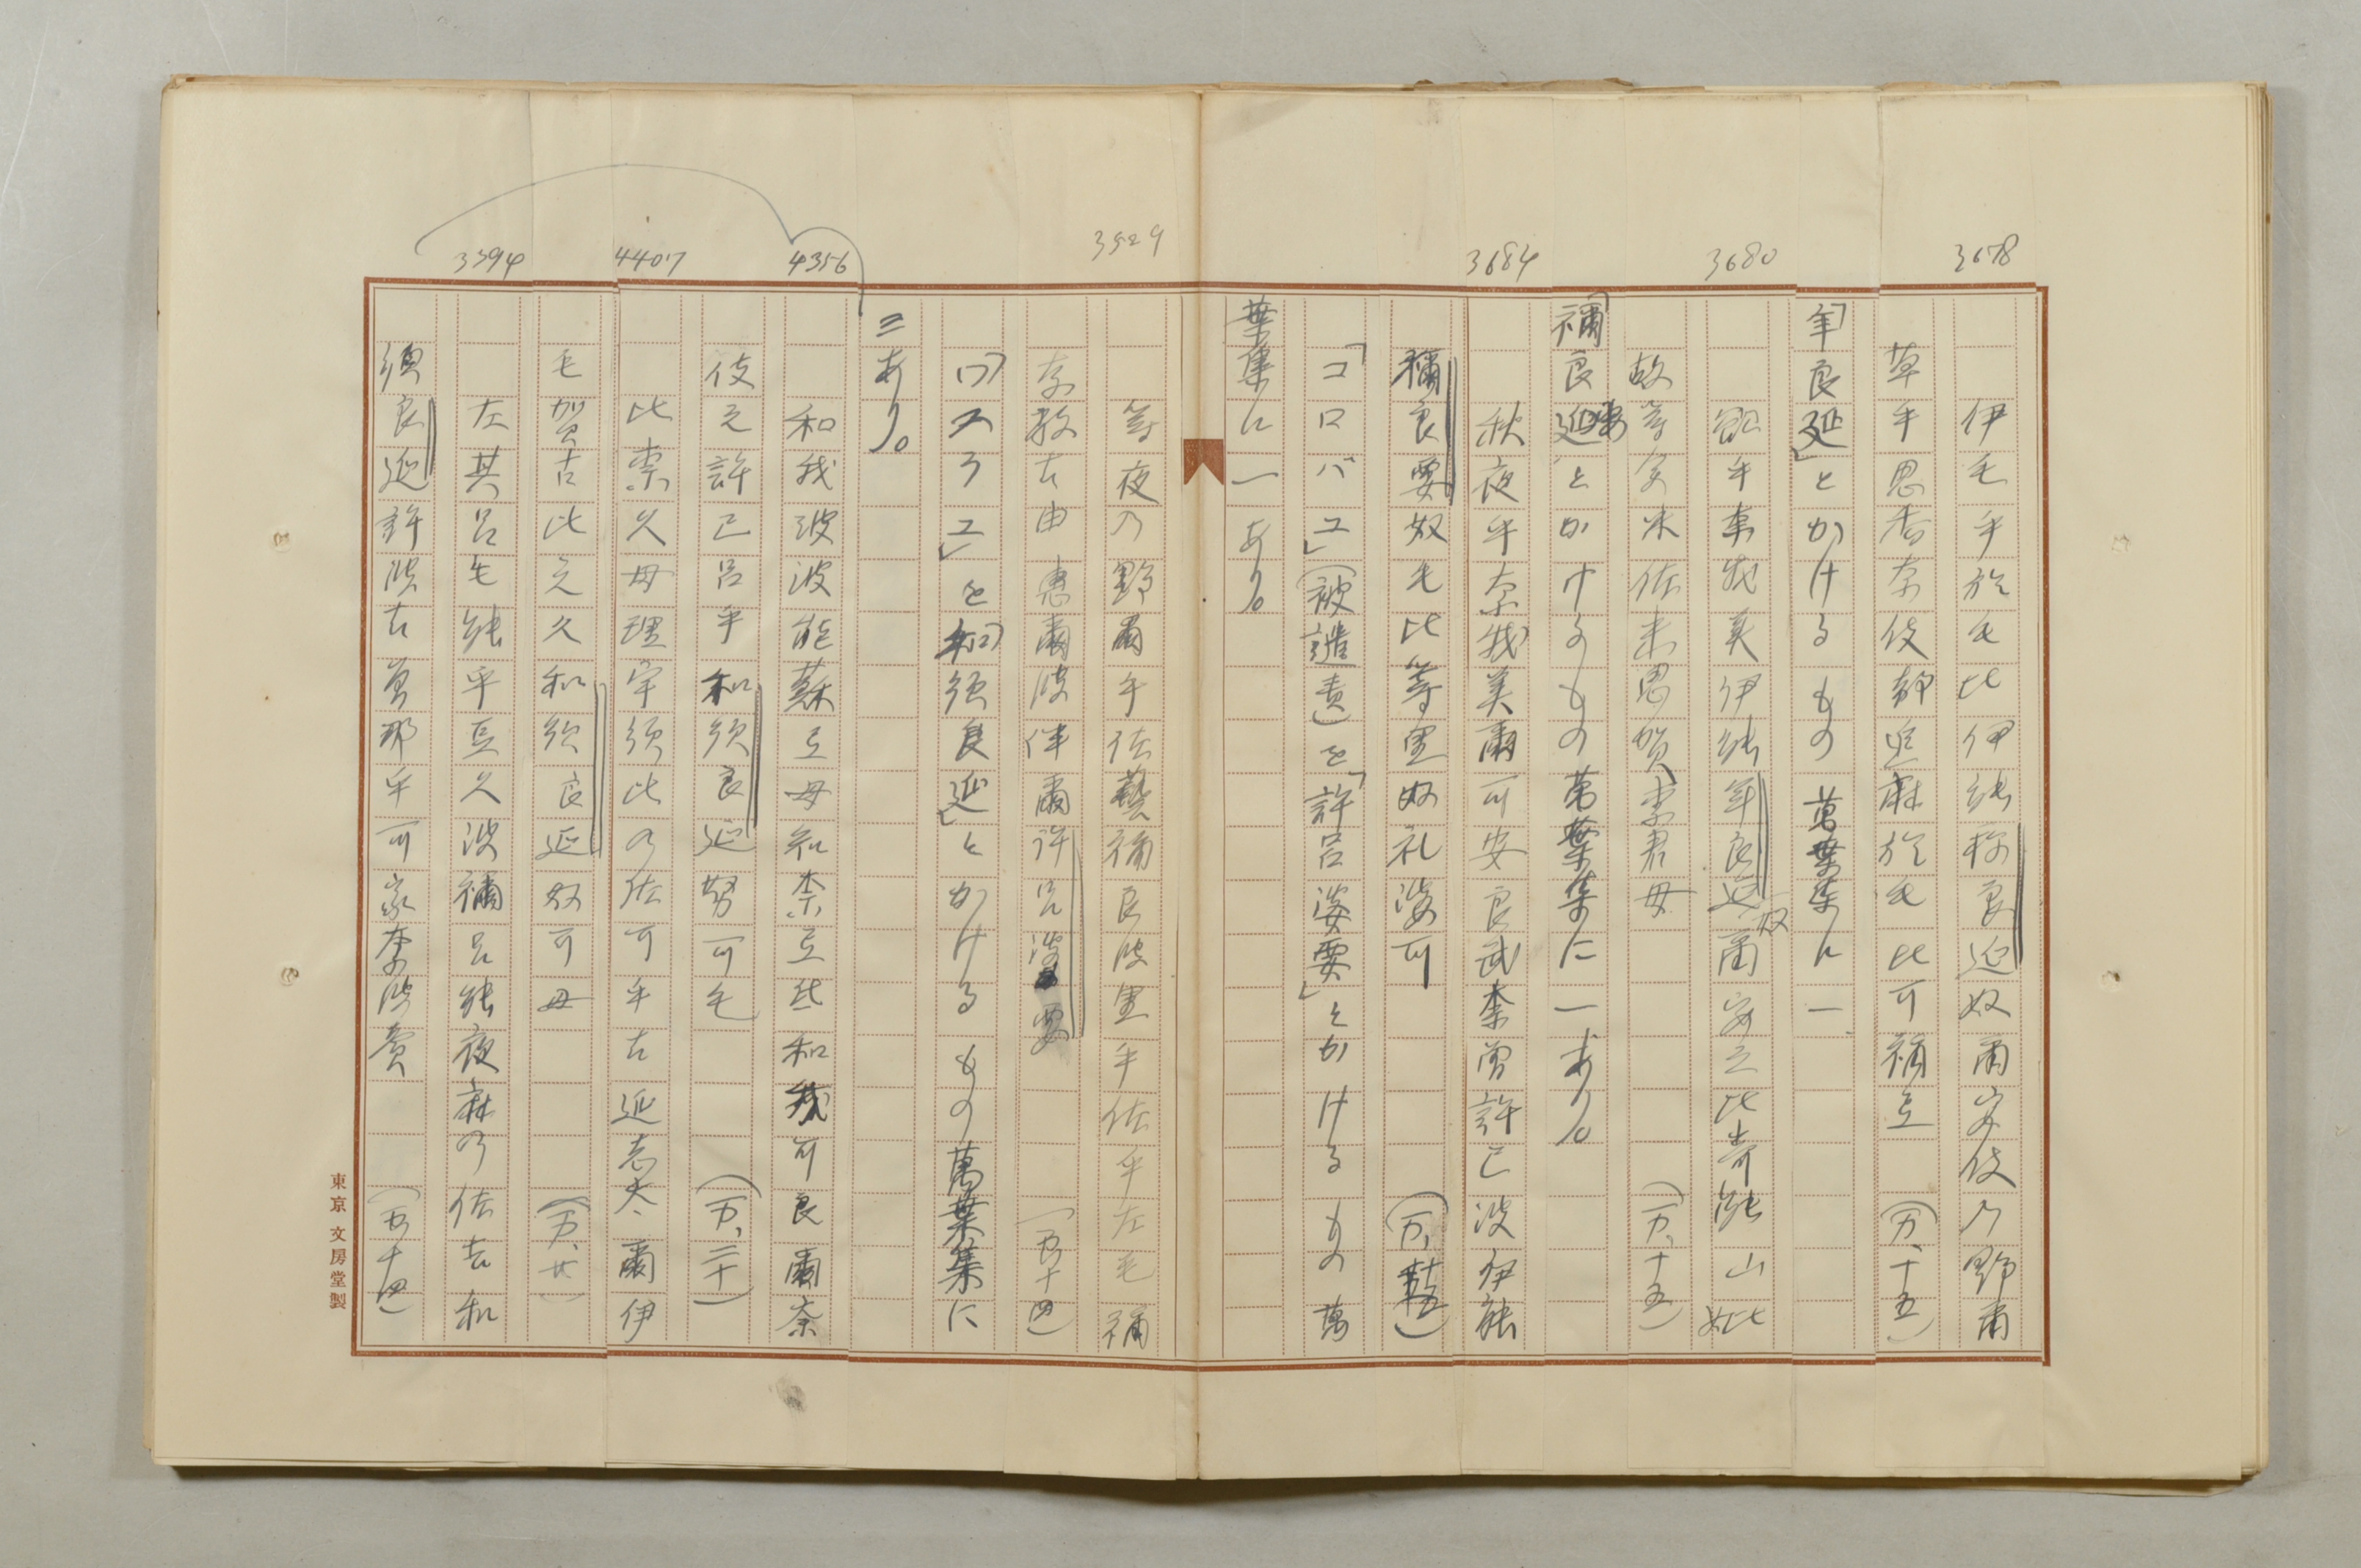 3678
伊毛乎於毛比伊能祢良延奴爾安伎乃野爾
草乎思香奈伎都追麻於毛比可祢弖(万、十五)
「年良延」とかけるもの萬葉集に一
3680
欲乎奈我美伊能年良延奴爾安之比奇能山妣
故等余米佐乎思賀奈君母(万、十五)
「禰良延」とかけるもの萬葉集に一あり。
3684
秋夜乎奈我美爾可安良武奈曽許己波伊能
禰良要奴毛比等里奴礼婆可(万、十五)
「コロバエ」(被譴責)を「許呂婆要」とかけるもの萬
葉集に一あり。
3529
等夜乃野爾乎佐藝祢良波里乎佐乎左毛祢
奈敝古由恵爾波伴爾許呂波要(万、十四)
「ワスラエ」を「和須良延」とかけるもの萬葉集に
三あり。
4356
和我波波能蘇弖母知奈弖弖和我可良爾奈
伎之許己呂乎和須良延努可毛(万、二十)
4407
比奈久母理宇須比乃佐可乎古延志太爾伊
毛賀古比之久和須良延奴可母(万、廿)
3394
左其呂毛能乎豆久波禰呂能夜麻乃佐吉和
須良延許波古曽那乎可家奈波賣(万、十四)
東京文房堂製